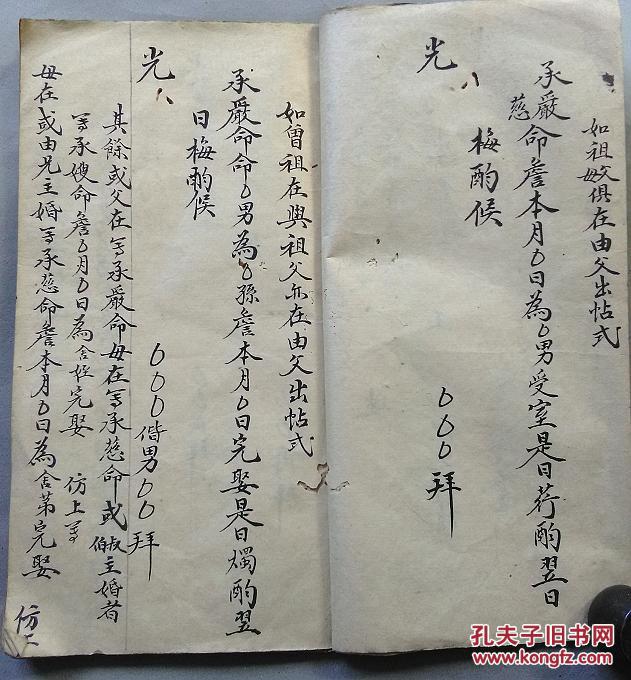 如祖父母俱在由父出帖式
承嚴慈命詹本月〇日為〇男受室是日荇酌翌日
梅酌候
光
〇〇〇拜
如曾祖在與祖父亦在由父出帖式
承嚴命命〇男為〇孫詹本月〇日完娶是日燭酌翌
日梅酌候
光
〇〇〇偕男〇〇拜
其餘或父在寫承嚴命母在寫承慈命或伯叔主婚者
寫承嫂命詹〇月〇日為舍姪完娶 仿上寫
母在或由兄主婚寫承慈命詹本月〇日為舍第完娶
仿上
孔夫子旧书网
www.kongfz.com